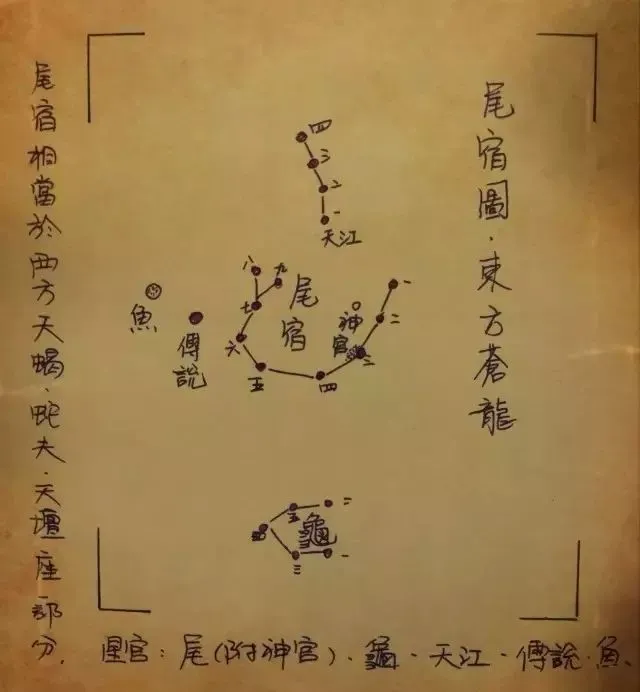 尾宿圖·東方蒼龍
尾宿相當於西方天蝎、蛇夫、天壇座部分.
四
三
二
一
天江
八
九
七
六
五
四
三
二
一
尾宿
神官
魚
傅説
二
五
四
三
一
龜
星官：尾(附神官)、龜·天江·傅説·魚、